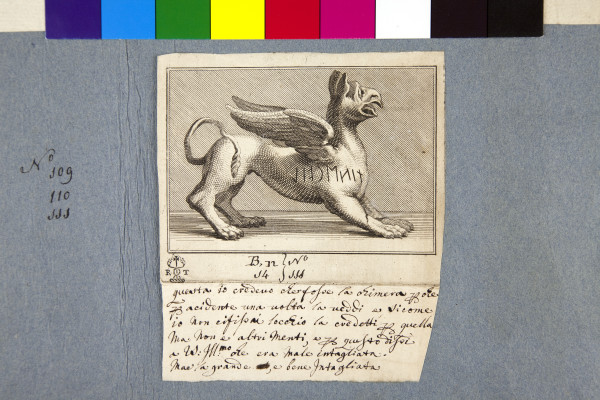 No
109
110
111
B. n } No
14 } 111
R T
questa io credevo che fosse la chimera p che
p accidente una volta la veddi e sicome
io non cifissai lochio la credetti p quella
ma non e altri menti, e p questo dissi
a W: Ill:mo che era male intagliata.
ma la grande e bene Intagliata